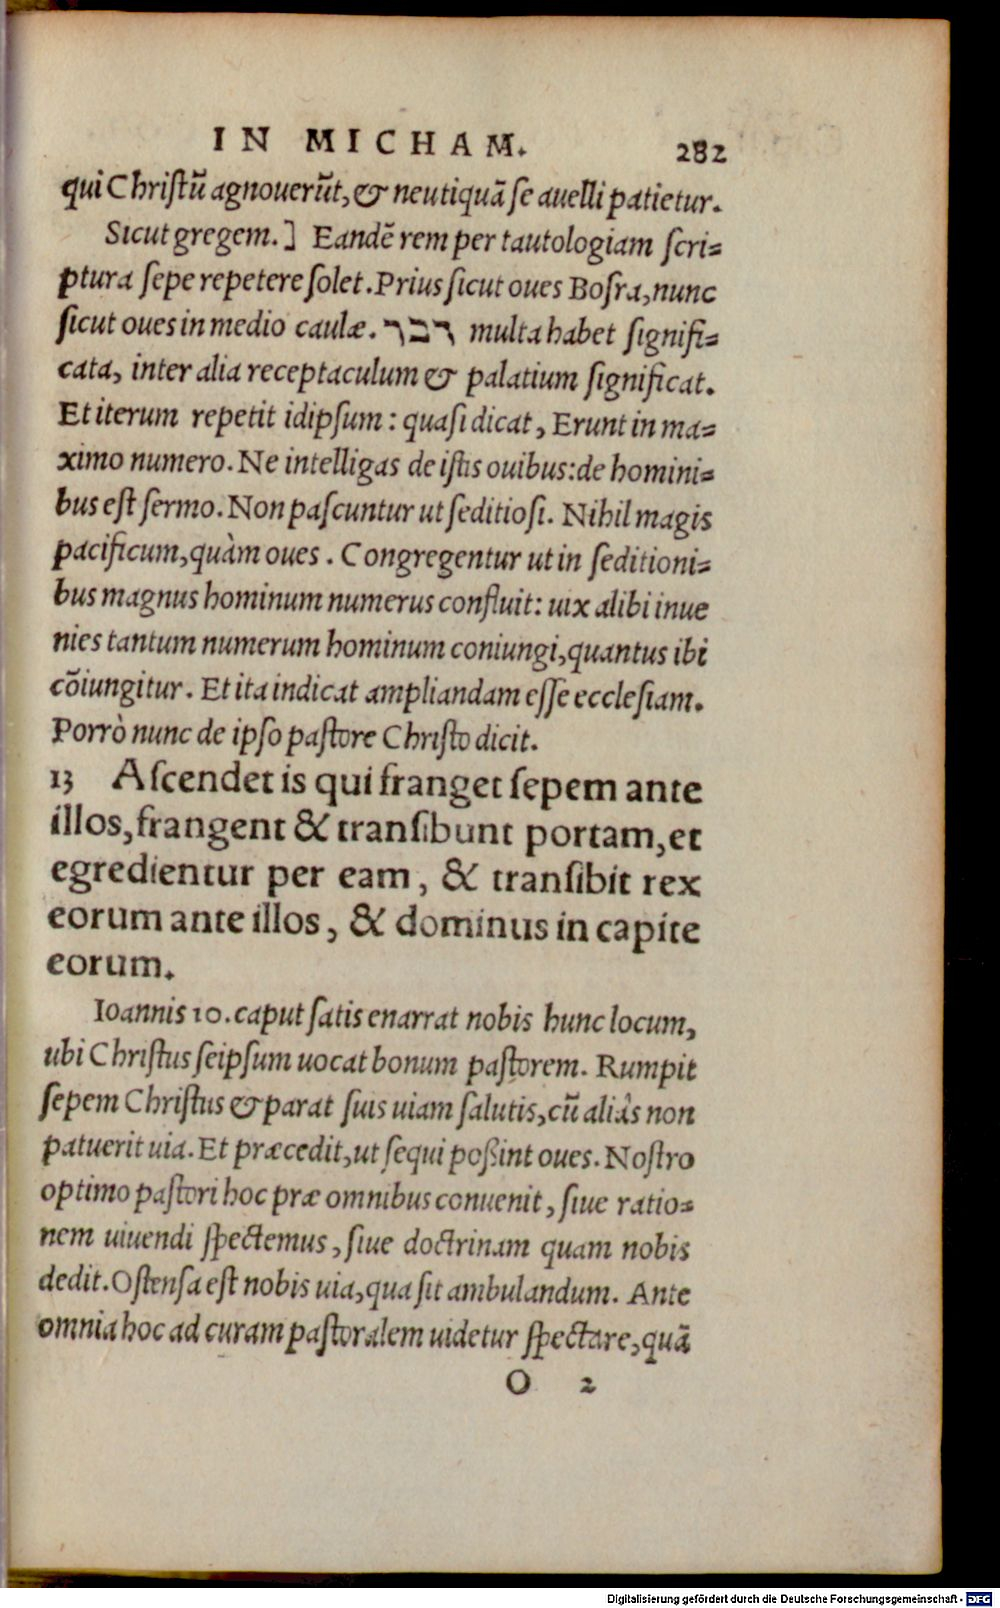 IN MICHAM. 282
qui Christũ agnouerũt, & neutiquã se auelli patietur.
Sicut gregem.] Eandẽ rem per tautologiam scri=
ptura sepe repetere solet. Prius sicut oues Bosra, nunc
sicut oues in medio caulæ. דבר multa habet signifi=
cata, inter alia receptaculum & palatium significat.
Et iterum repetit idipsum: quasi dicat, Erunt in ma=
ximo numero. Ne intelligas de istis ouibus: de homini=
bus est sermo. Non pascuntur ut seditiosi. Nihil magis
pacificum, quàm oues. Congregentur ut in seditioni=
bus magnus hominum numerus confluit: uix alibi inue
nies tantum numerum hominum coniungi, quantus ibi
cõiungitur. Et ita indicat ampliandam esse ecclesiam.
Porrò nunc de ipso pastore Christo dicit.
13 Ascendet is qui franget sepem ante
illos, frangent & transibunt portam, et
egredientur per eam, & transibit rex
eorum ante illos, & dominus in capite
eorum.
Ioannis 10. caput satis enarrat nobis hunc locum,
ubi Christus seipsum uocat bonum pastorem. Rumpit
sepem Christus & parat suis uiam salutis, cũ aliâs non
patuerit uia. Et præcedit, ut sequi poßint oues. Nostro
optimo pastori hoc præ omnibus conuenit, siue ratio=
nem uiuendi spectemus, siue doctrinam quam nobis
dedit. Ostensa est nobis uia, qua sit ambulandum. Ante
omnia hoc ad curam pastoralem uidetur spectare, quã
O 2
Digitalisierung gefördert durch die Deutsche Forschungsgemeinschaft - DFG